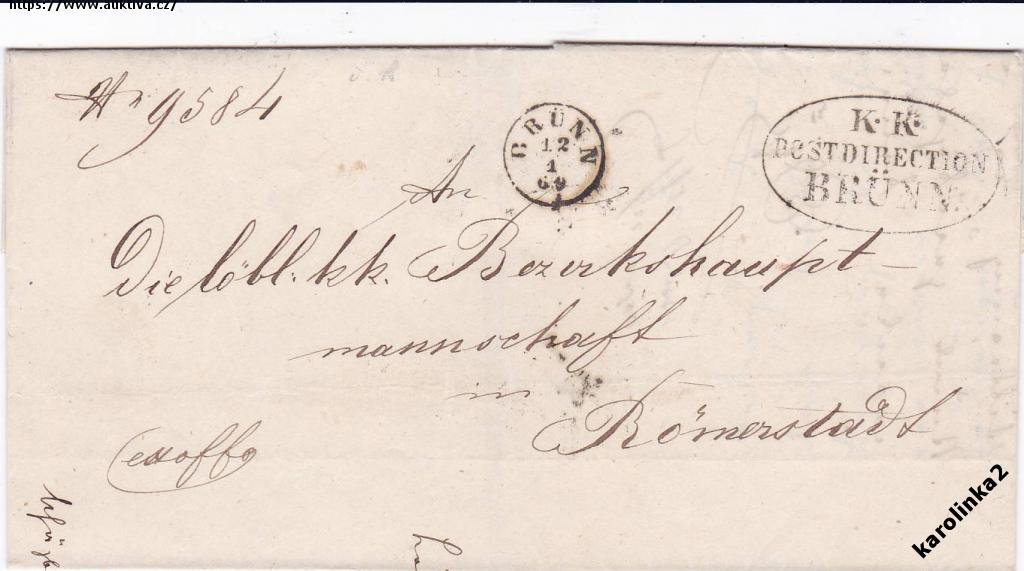 https://www.auktiva.cz/
Nr 9584
BRÜNN
12
1
69
K. K.
POSTDIRECTION
BRÜNN
An
Die löbl: kk. Bezirkshaupt-
mannschaft
in
Römerstadt
exoffo
karolinka2